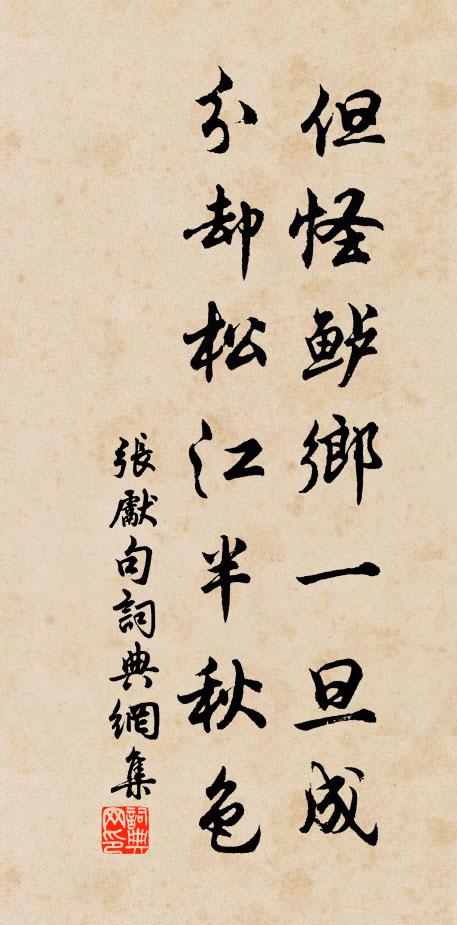 但怪鲈鄉一旦成
分却松江半秋色
張獻句詞典網集
詞典
网印